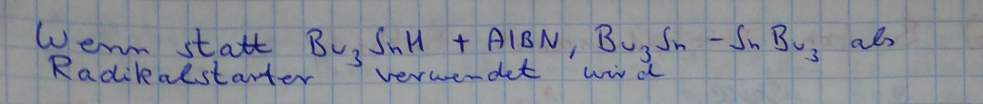 Wenn statt Bu₃SnH + AIBN, Bu₃Sn - SnBu₃ als
Radikalstarter verwendet wird